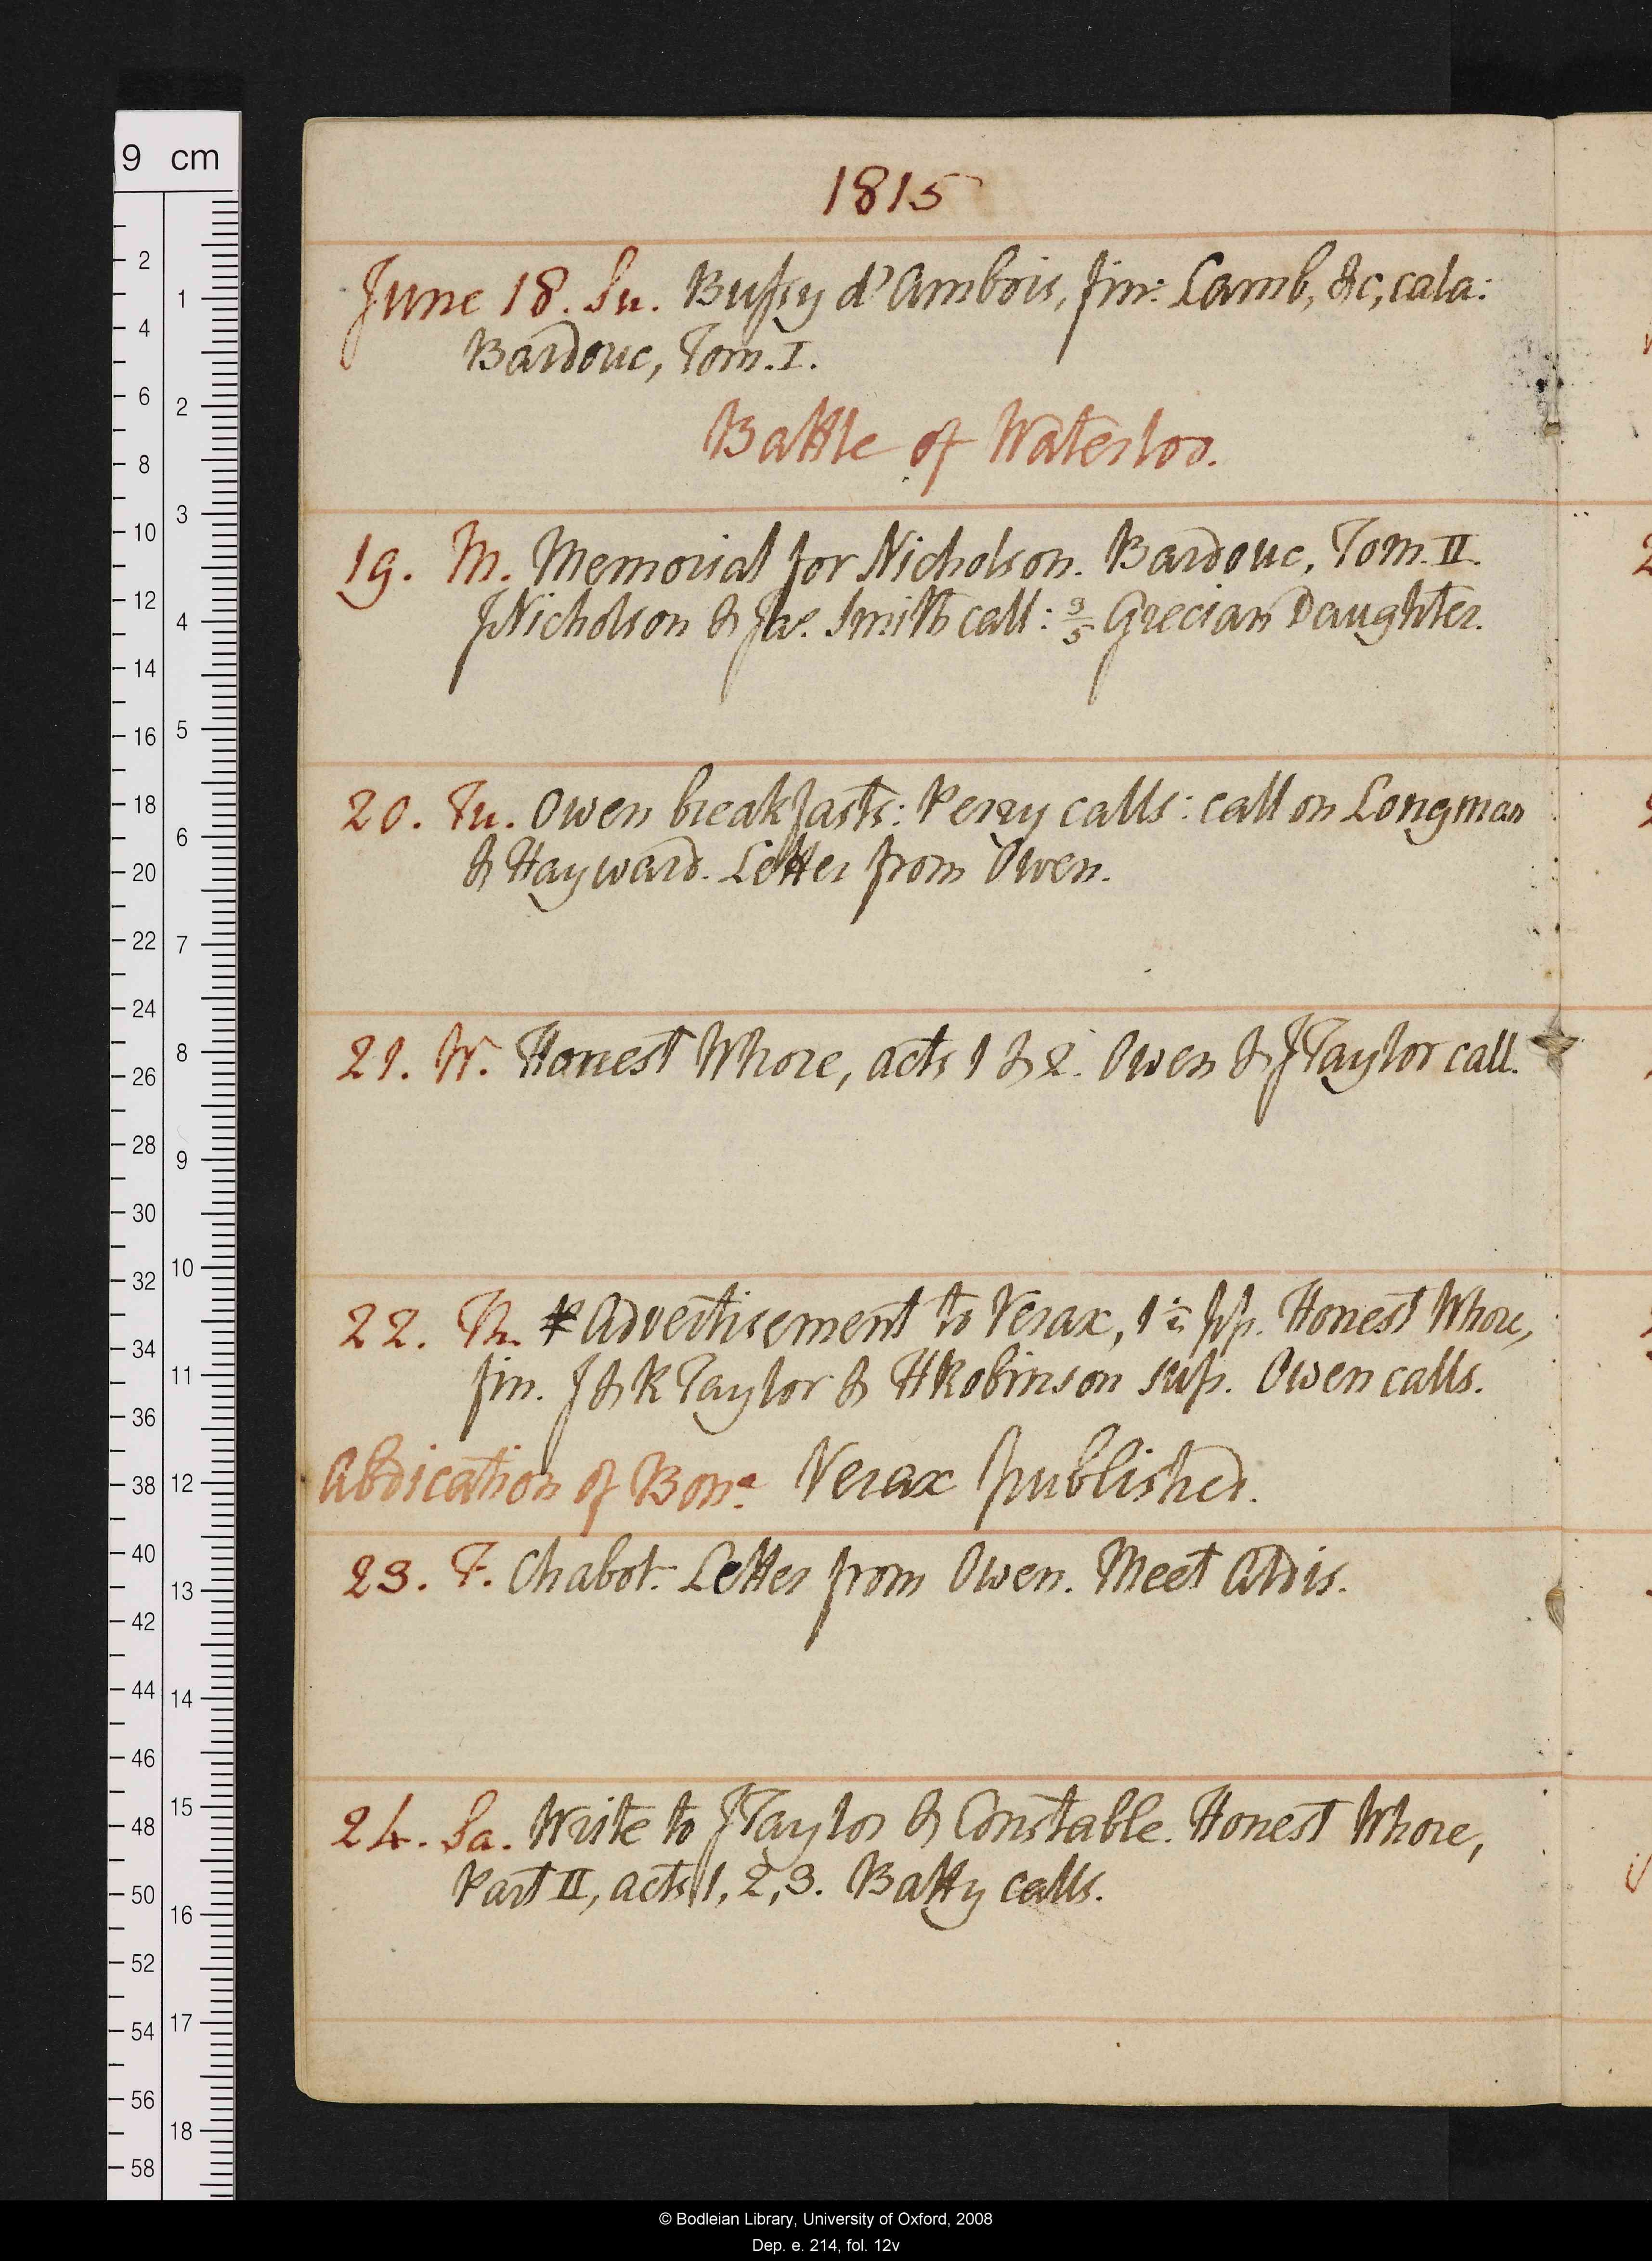 1815
June 18. Su. Bussy d'Ambois, fin: Lamb, &c, cala:
Bardouc, Tom. I.
Battle of Waterloo.
19. M. Memorial for Nicholson. Bardouc, Tom. II.
JNicholson & Jas. Smith call: 3/5 Grecian Daughter.
20. Tu. Owen breakfasts: Perry calls: call on Longman
& Hayward. Letter from Owen.
21. W. Honest Whore, acts 1 & 2. Owen & JTaylor call.
22. Th. Advertisement to Verax, 1½ pp. Honest Whore,
fin. J & R Taylor & HRobinson sup. Owen calls.
Abdication of Bone. Verax published.
23. F. Chabot. Letter from Owen. Meet Aldis.
24. Sa. Write to JTaylor & Constable. Honest Whore,
Part II, acts 1, 2, 3. Batty calls.
9 cm
2
4
6
8
10
12
14
16
18
20
22
24
26
28
30
32
34
36
38
40
42
44
46
48
50
52
54
56
58
1
2
3
4
5
6
7
8
9
10
11
12
13
14
15
16
17
18
© Bodleian Library, University of Oxford, 2008
Dep. e. 214, fol. 12v